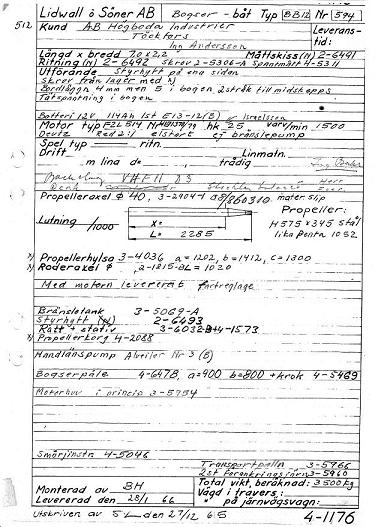 Lidwall & Söner AB Bogser-båt Typ BB12 Nr 594
512 Kund AB Högboda Industrier Leverans-
Töcksfors tid:
Ing Andersson
Längd x bredd 7,0 x 2,2 Måttskiss(n) 2-6491
Ritning(n) 2-6492 skrov 2-5306-A Spantmått 4-5311
Utförande Styrhytt på ena sidan
Skrov från lager med
Bordlägg 4mm men 5 i bogen 2stråk till midskepps
Tätspantning i bogen
Batteri 12V. 114Ah 1st E13-12(B)
Motor typ F2L514 hk 25 varv/min 1500
Deutz Red 2:1 elstart ej bränslepump
Spel typ ritn.
Drift Linmatn.
m lina d= , trådig
Propelleraxel ø 40, 3-2904-1 mater. slip
Propeller:
Lutning /1000 X= H575 x 345 stål
L= 2285 lika Penta 1052
Propellerhylsa 3-4036 a=1202, b=1412, c=1300
Roderaxel ø 2-1315-B L=1020
Med motorn levererat fartreglage
Bränsletank 3-5069-A
Styrhytt 2-6493
Ratt + stativ 3-6032-B+4-1573
Propellerkorg 4-2068
Handlänspump Alweiler Nr 3 (B)
Bogserpåle 4-6478, a=900 b=800 + krok 4-5469
Motorhuv i princip 3-5754
Smörjinstr 4-5046
Transportpalln 3-5966
2st förankringsjärn 3-5960
Total vikt, beräknad: 3500kg
Monterad av BH Vägd i travers:
Levererad den 28/1 66 " på järnvägsvagn:
Utskriven av den 27/12 65 4-1176